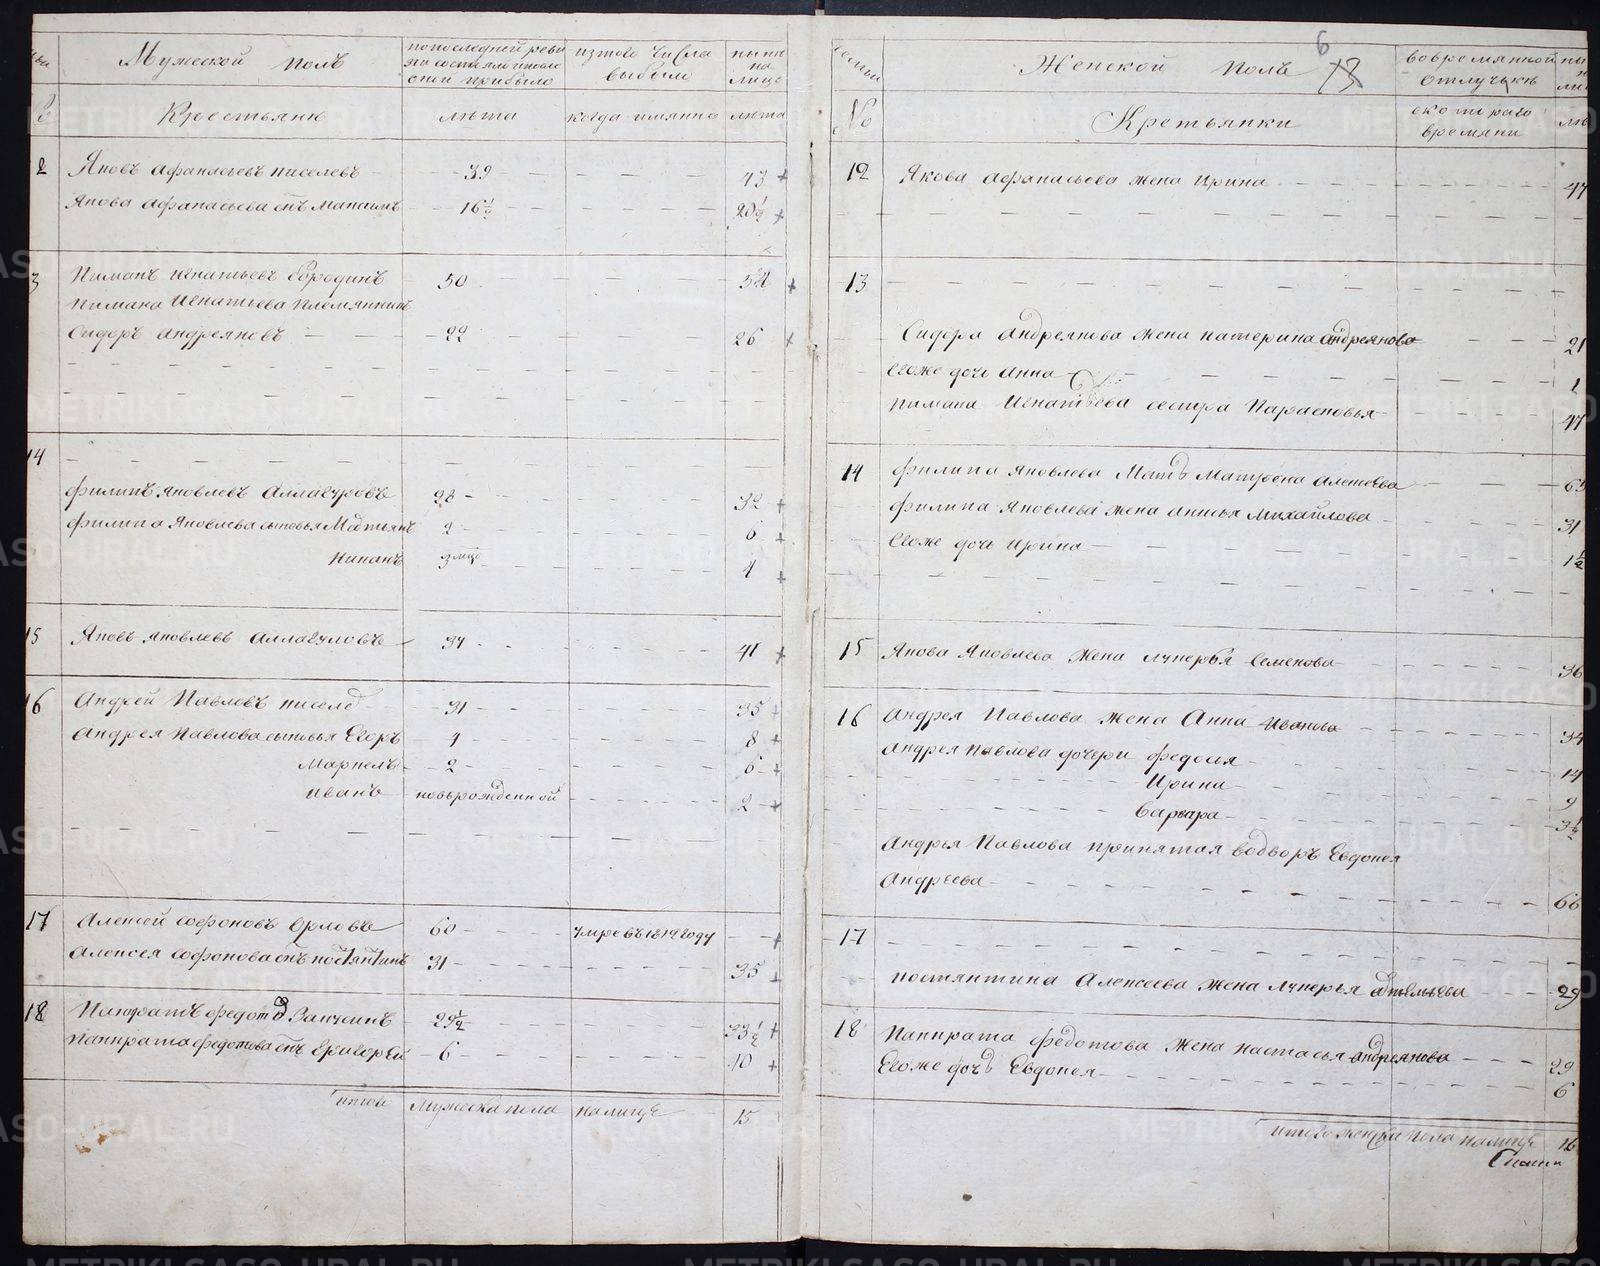 Мужеской полъ
по последней реви
зии состояло и после
оной прибыло
изтого числа
выбыло
ныне
на
лицо
Крестьяне
лѣта
когда имянно
лѣта
2 Яковъ Афанасьевъ Киселевъ 39 43
Якова Афанасьева сынъ Максимъ 16½ 20½
3 Пиманъ Игнатьевъ Бородинъ 50 54
Пимана Игнатьева племянникъ
Сидоръ Андреяновъ 22 26
14
Филипъ Яковлевъ Аллагуловъ 28 32
Филипа Яковлева сыновья 2 6
4
15 Яковъ Яковлевъ Аллагуловъ 37 41
16 Андрей Павловъ Киселе 31 35
Андрея Павлова сыновья Егоръ 4 8
Маркелъ 2 6
Иванъ новорожденной 2
17 Алексей Софоновъ Орловъ 60 умре въ 1812 году
Алексея Софонова сынъ Костянтинъ 31 35
18 Панкратъ Федотовъ 29½ 33½
Панкрата Федотова сынъ Григорей 6 10
итого мужеска пола налице 15
6
13
Женской полъ
во временной
отлучьке
№
Крестьянки
с которого
времяни
12 Якова Афанасьева жена Ирина 47
13
Сидора Андреянова жена Катерина Андреянова 21
Егоже дочь Анна 1
Пимана Игнатьева сестра Парасковья 47
14 Филипа Яковлева мать Матрена Алексеева 65
Филипа Яковлева жена Анисья Михайлова 31
Егоже дочь Ирина 1½
15 Якова Яковлева жена Лукерья Семенова 36
16 Андрея Павлова жена Анна Иванова 34
Андрея Павлова дочери Федосья 14
Ирина 9
Варвара 3½
Андрея Павлова принятая водворъ Евдокея
Андреева 66
17
Костянтина Алексеева жена Лукерья 29
18 Панкрата Федотова жена Настасья Андреянова 29
Егоже дочь Евдокея 6
итого женска пола налице 16